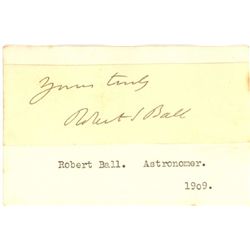 Yours truly
Robert S Ball
Robert Ball. Astronomer.
1909.